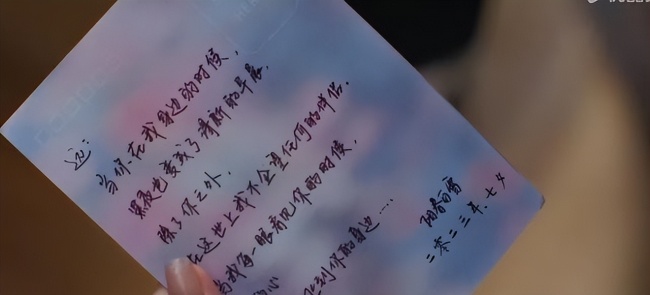 远:
当你在我身边的时候,
黑夜也变成了清新的早晨。
除了你之外,
在这世上我不企望任何的伴侣。
当我第一眼看见你的时候,
的心
到你的身边……
阳春白雪
二零二三年.七夕